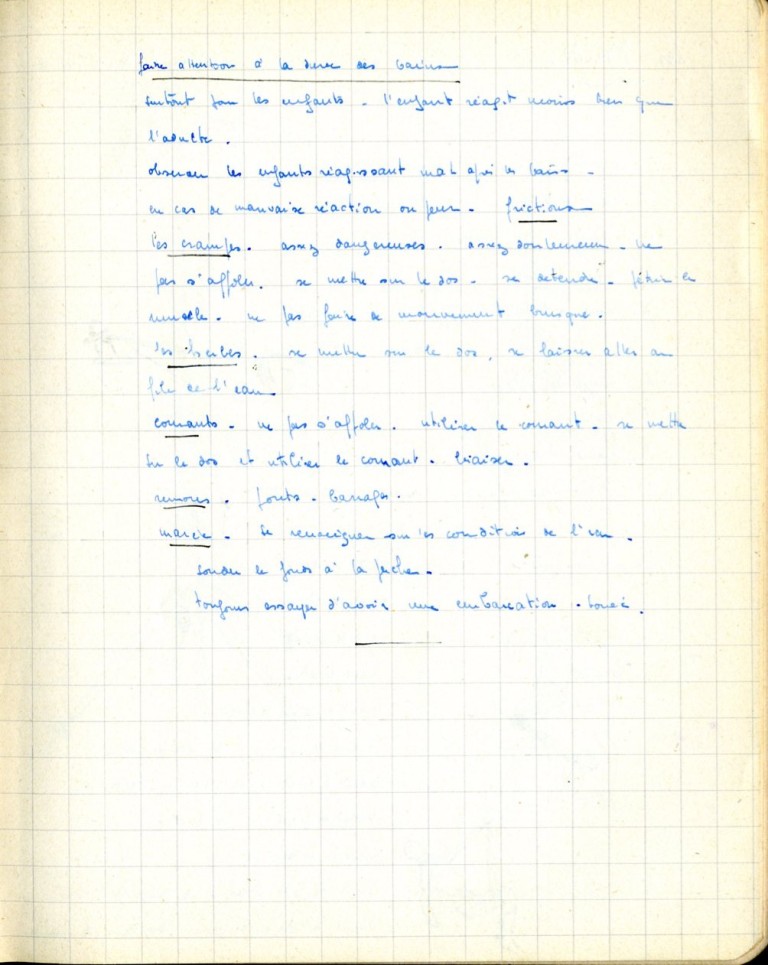 faire attention à la durée des bains
surtout pour les enfants - l'enfant réagit moins bien que
l'adulte.
observer les enfants réagissant mal après les bains -
en cas de mauvaise réaction ou peur - frictions
les crampes. assez dangereuses. assez douloureux - ne
pas s'affoler. se mettre sur le dos - se détendre - pétrir le
muscle. ne pas faire de mouvement brusque.
les herbes. se mettre sur le dos, se laisser aller au
fil de l'eau
courants - ne pas s'affoler. utiliser le courant - se mettre
sur le dos et utiliser le courant.
remous. ponts - barrages.
marée - se renseigner sur les conditions de l'eau.
sonder le fond à la perche.
toujours essayer d'avoir une embarcation - bouée.